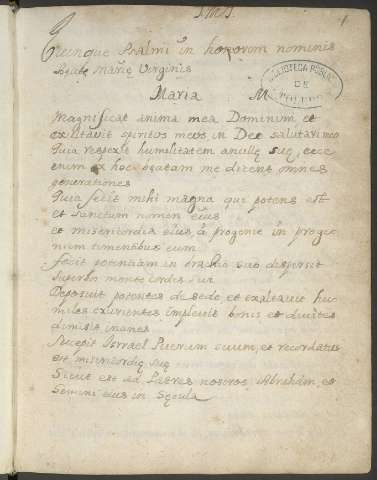 J.M.J.
1
Quinque Psalmi in honorem nominis
Beatę Marię Virginis
BIBLIOTECA PUBLICA
DE
TOLEDO
Maria M
Magnificat anima mea Dominum et
exultavit spiritus meus in Deo salutari meo
Quia respexit humilitatem ancillę suę, ecce
enim ex hoc beatam me dicent omnes
generationes
Quia fecit mihi magna qui potens est
et sanctum nomen eius
et misericordia eius á progenie in proge
niem timentibus eum
fecit potentiam in brachio suo dispersit
superbos mente cordis sui
Deposuit potentes de sede, et exaltavit hu
miles exurientes implevit bonis et divites
dimisit inanes
Suscepit Isrrael Puerum suum, et recordatus
est misericordię suę
Sicut est ad Patres nostros Abraham, et
Semini eius in Sęcula